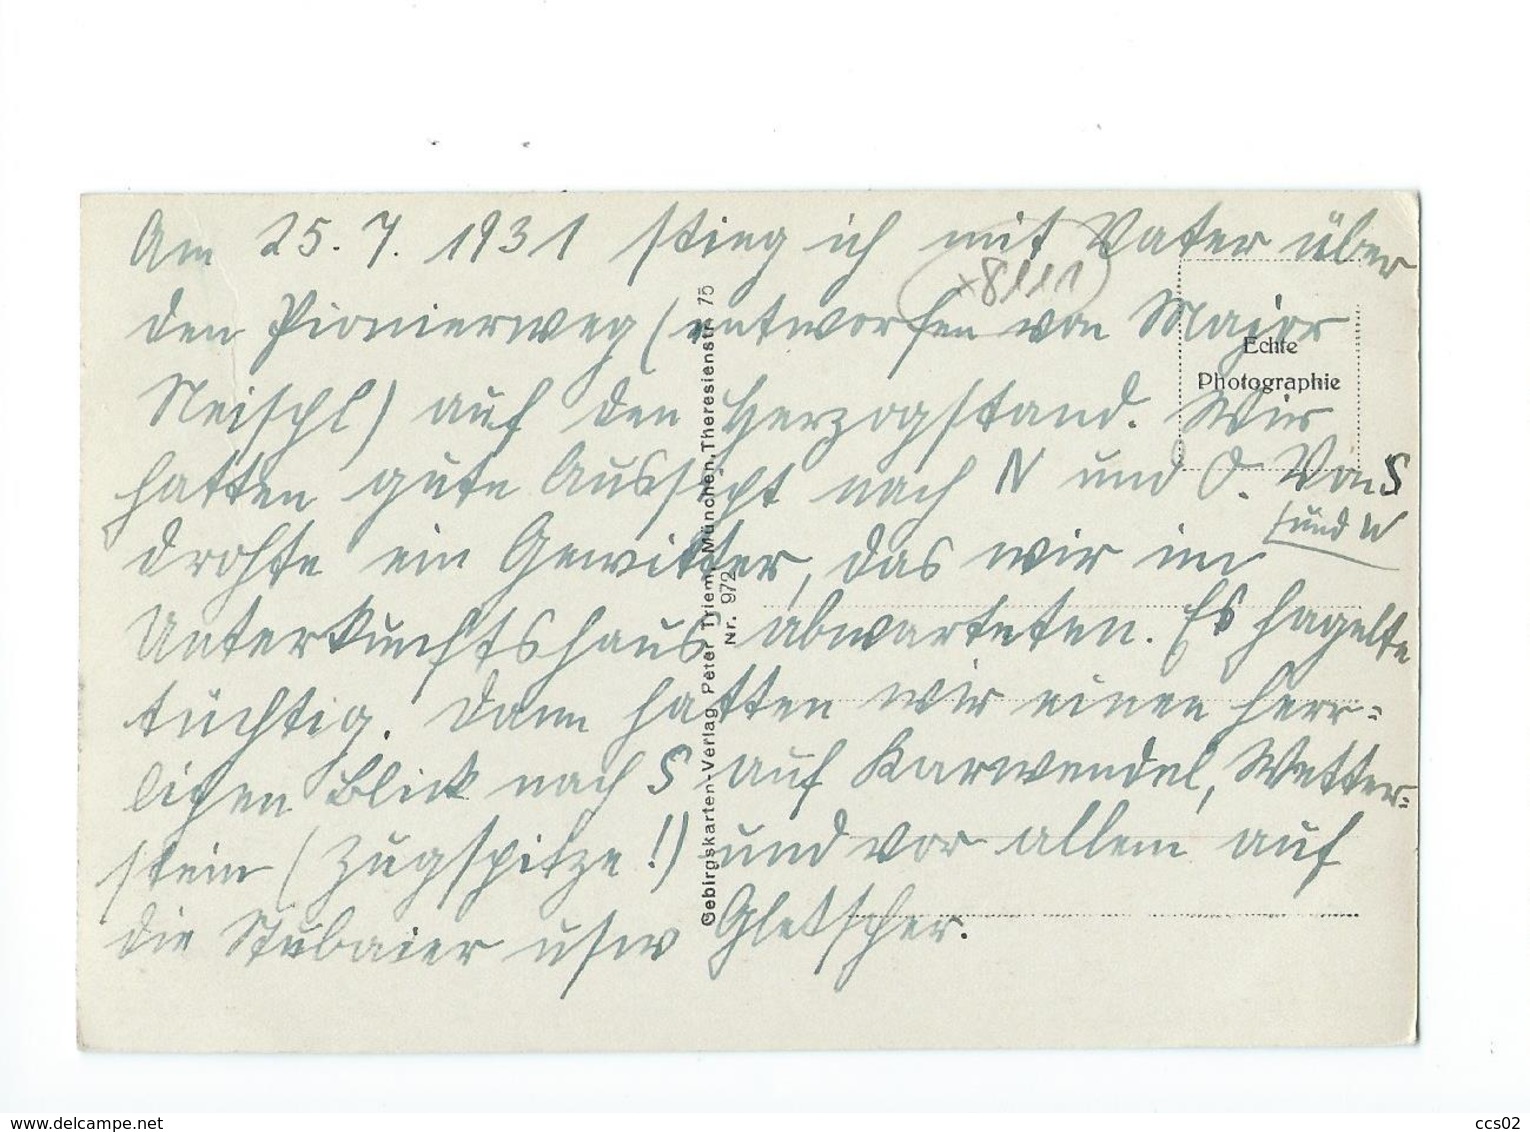 Am 25. 7. 1931 stieg ich mit Vater über
den Pionierweg (entworfen von Major
Neischl) auf den Herzogstand. Wir
hatten gute Aussicht nach N und O. Von S
und W
drohte ein Gewitter, das wir im
Unterkunftshaus abwarteten. Es hagelte
tüchtig. Dann hatten wir einen herr-
lichen Blick nach S auf Karwendel, Wetter-
stein (Zugspitze!) und vor allem auf
die Stubaier usw Gletscher.
Echte
Photographie
Gebirgskarten-Verlag Peter Triem, München, Theresienstr. 75
Nr. 972
www.delcampe.net
ccs02